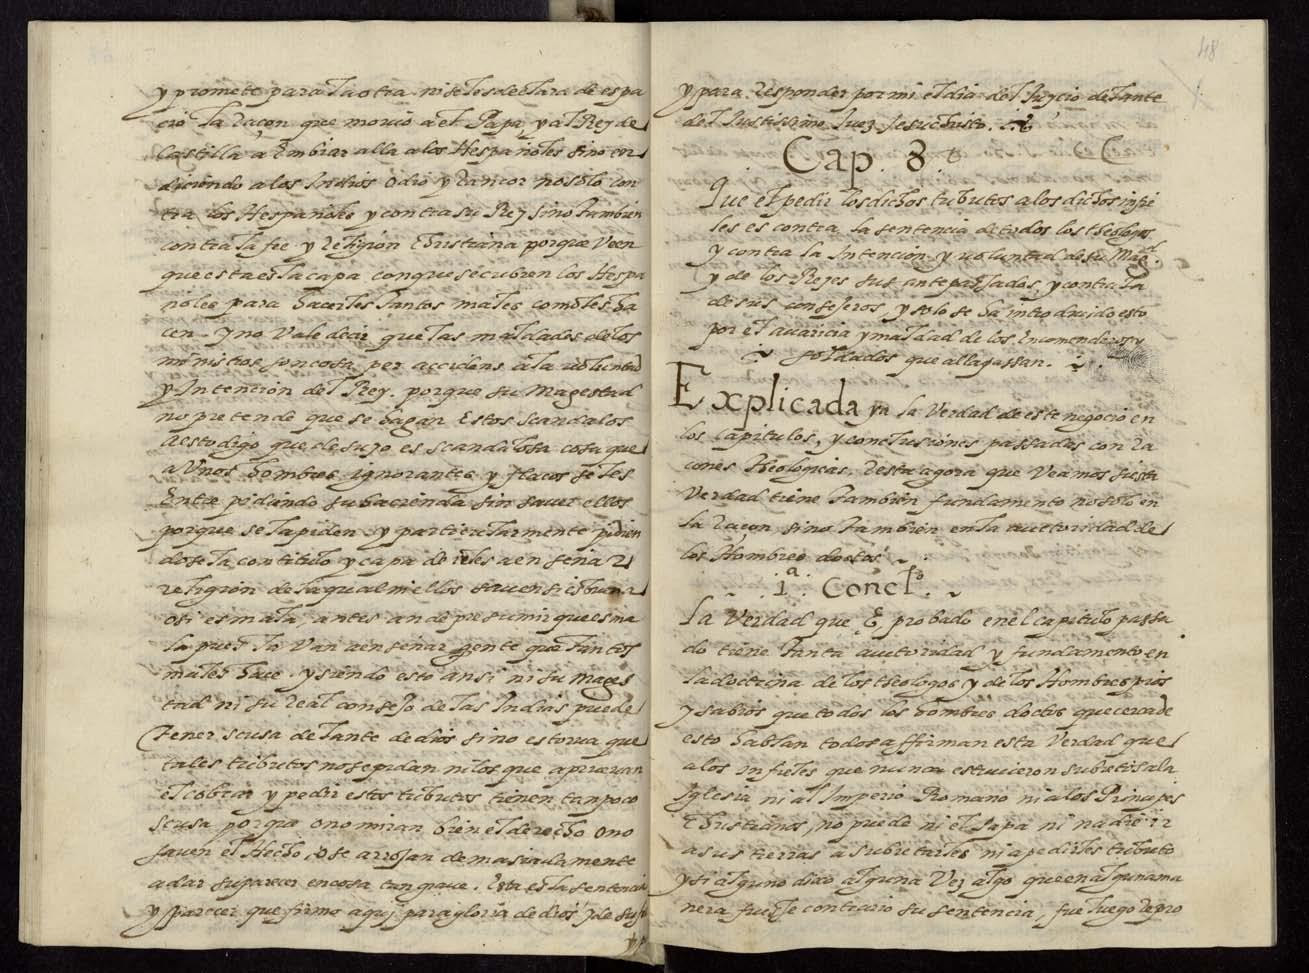 y promete para la otra. ni se les declara de espa
cio la raçon que mouio a el Papa, y al Rey de
Castilla a embiar alla a los Hespañoles sino en
diciendo a los Indios odio y rancor no solo con
tra los Hespañoles y contra su Rey sino tambien
contra la fee y religion Christiana porque veen
que esta es la capa con que se cubren los Hespa
ñoles para hacerles tantos males como les ha
cen. y no vale decir que las maldades de los
ministros son cosa per accidens a la voluntad
y Intencion del Rey. porque su Magestad
no pretende que se hagan estos scandalos
a esto digo que de suyo es scandalosa cosa que
a vnos hombres ignorantes y flacos se les
entre pidiendo su hacienda sin sauer ellos
porque se la piden. y particularmente pidien
dosela con titulo y capa de irles a enseñar
religion de la qual ni ellos sauen si es buena
o si es mala, antes an de presumir que es ma
la pues la van a enseñar gente que tantos
males hace. y siendo esto ansi ni su Mages
tad ni su real consejo de las Indias puede
tener scusa delante de dios sino estorua que
tales tributos no se pidan ni los que aprueuan
el cobrar y pedir estos tributos tienen tampoco
scusa porque o no miran bien el derecho o no
sauen el Hecho, o se arrojan demasiadamente
a dar su parecer en cosa tan graue. Esta es la sentencia
y parecer que firmo aquj para gloria de dios y de su
48
y para responder por mi el dia del Juycio delante
del Justissimo Juez Jesuchristo.
Cap. 8
Que el pedir los dichos tributos a los dichos infie
les es contra la sentencia de todos los theologos
y contra la Intencion y voluntad de su Magd.
y de los Reyes sus antepassados, y contra la
de sus consejeros y solo se ha introducido esto
por el auaricia y maldad de los Encomenderos y
soldados que alla passan.
Explicada ya la Verdad de este negocio en
los capitulos, y conclusiones passadas con ra
cones theologicas. resta agora que veamos si esta
Verdad tiene tambien fundamento no solo en
la raçon sino tambien en la auctoridad de
los Hombres doctos.
1ª. Concl.
La Verdad que E probado en el capitulo passa
do tiene tanta auctoridad y fundamento en
la doctrina de los theologos y de los Hombres pios
y sabios que todos los hombres doctos que cerca de
esto hablan todos affirman esta Verdad que
a los infieles que nunca estuuieron subietos a la
Iglesia ni al Imperio Romano ni a los Principes
Christianos, no puede ni el Papa ni nadie ir
a sus tierras a subietarles ni a pedirles tributo
y si alguno dixo alguna Vez algo que en alguna ma
nera fuesse contrario su sentencia, fue luego repro